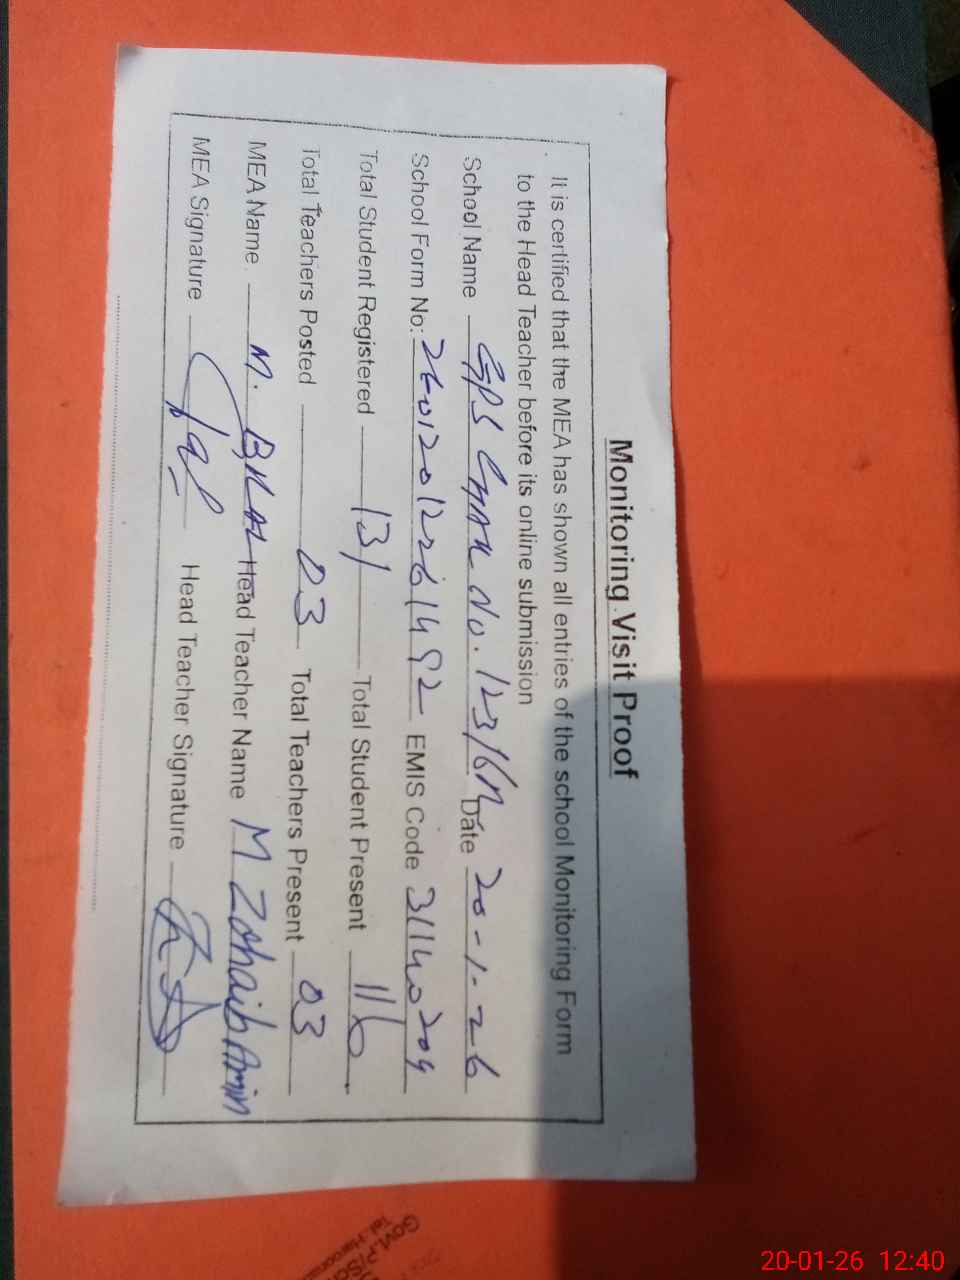 Monitoring Visit Proof
It is certified that the MEA has shown all entries of the school Monitoring Form
to the Head Teacher before its online submission
School Name GPS CHAK No. 123/6R Date 20-1-26
School Form No: 26012012261492 EMIS Code 31140209
Total Student Registered 131 Total Student Present 116
Total Teachers Posted 03 Total Teachers Present 03
MEA Name M. BILAL Head Teacher Name M Zohaib Amin
MEA Signature Head Teacher Signature
Govt.P/Sch
20-01-26 12:40